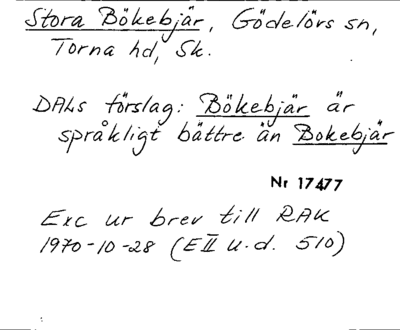 Stora Bökebjär, Gödelövs sn,
Torna hd, Sk.
DALs förslag: Bökebjär är
språkligt bättre än Bokebjär
Nr 17477
Exc ur brev till RAK
1970-10-28 (E II u.d. 510)